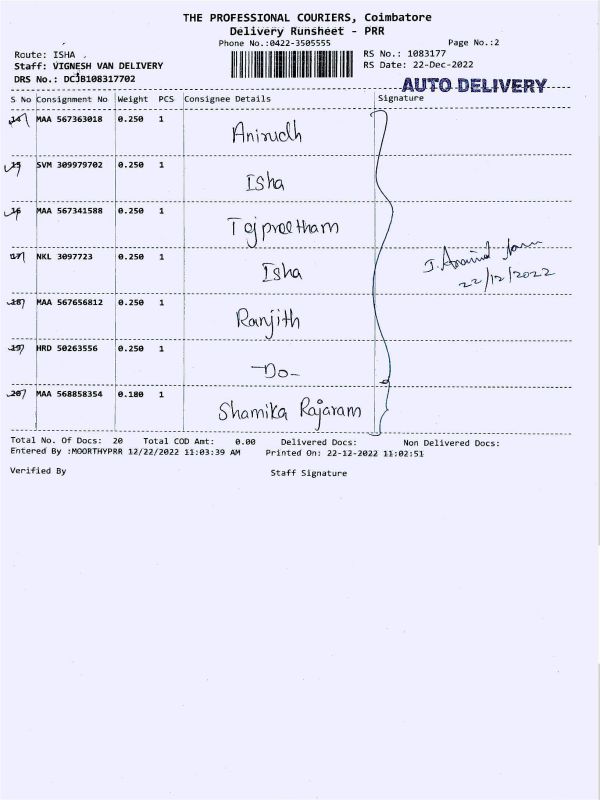 THE PROFESSIONAL COURIERS, Coimbatore
Delivery Runsheet - PRR
Phone No.:0422-3505555 Page No.:2
Route: ISHA RS No.: 1083177
Staff: VIGNESH VAN DELIVERY RS Date: 22-Dec-2022
DRS No.: DCJB108317702
AUTO DELIVERY
S No Consignment No Weight PCS Consignee Details Signature
14 MAA 567363018 0.250 1 Anirudh
15 SVM 309979702 0.250 1 Isha
16 MAA 567341588 0.250 1 Tejpreetham
17 NKL 3097723 0.250 1 Isha
J. Aravind
22/12/2022
18 MAA 567656812 0.250 1 Ranjith
19 HRD 50263556 0.250 1 -Do-
20 MAA 568858354 0.180 1 Shamika Rajaram
Total No. Of Docs: 20 Total COD Amt: 0.00 Delivered Docs: Non Delivered Docs:
Entered By :MOORTHYPRR 12/22/2022 11:03:39 AM Printed On: 22-12-2022 11:02:51
Verified By Staff Signature